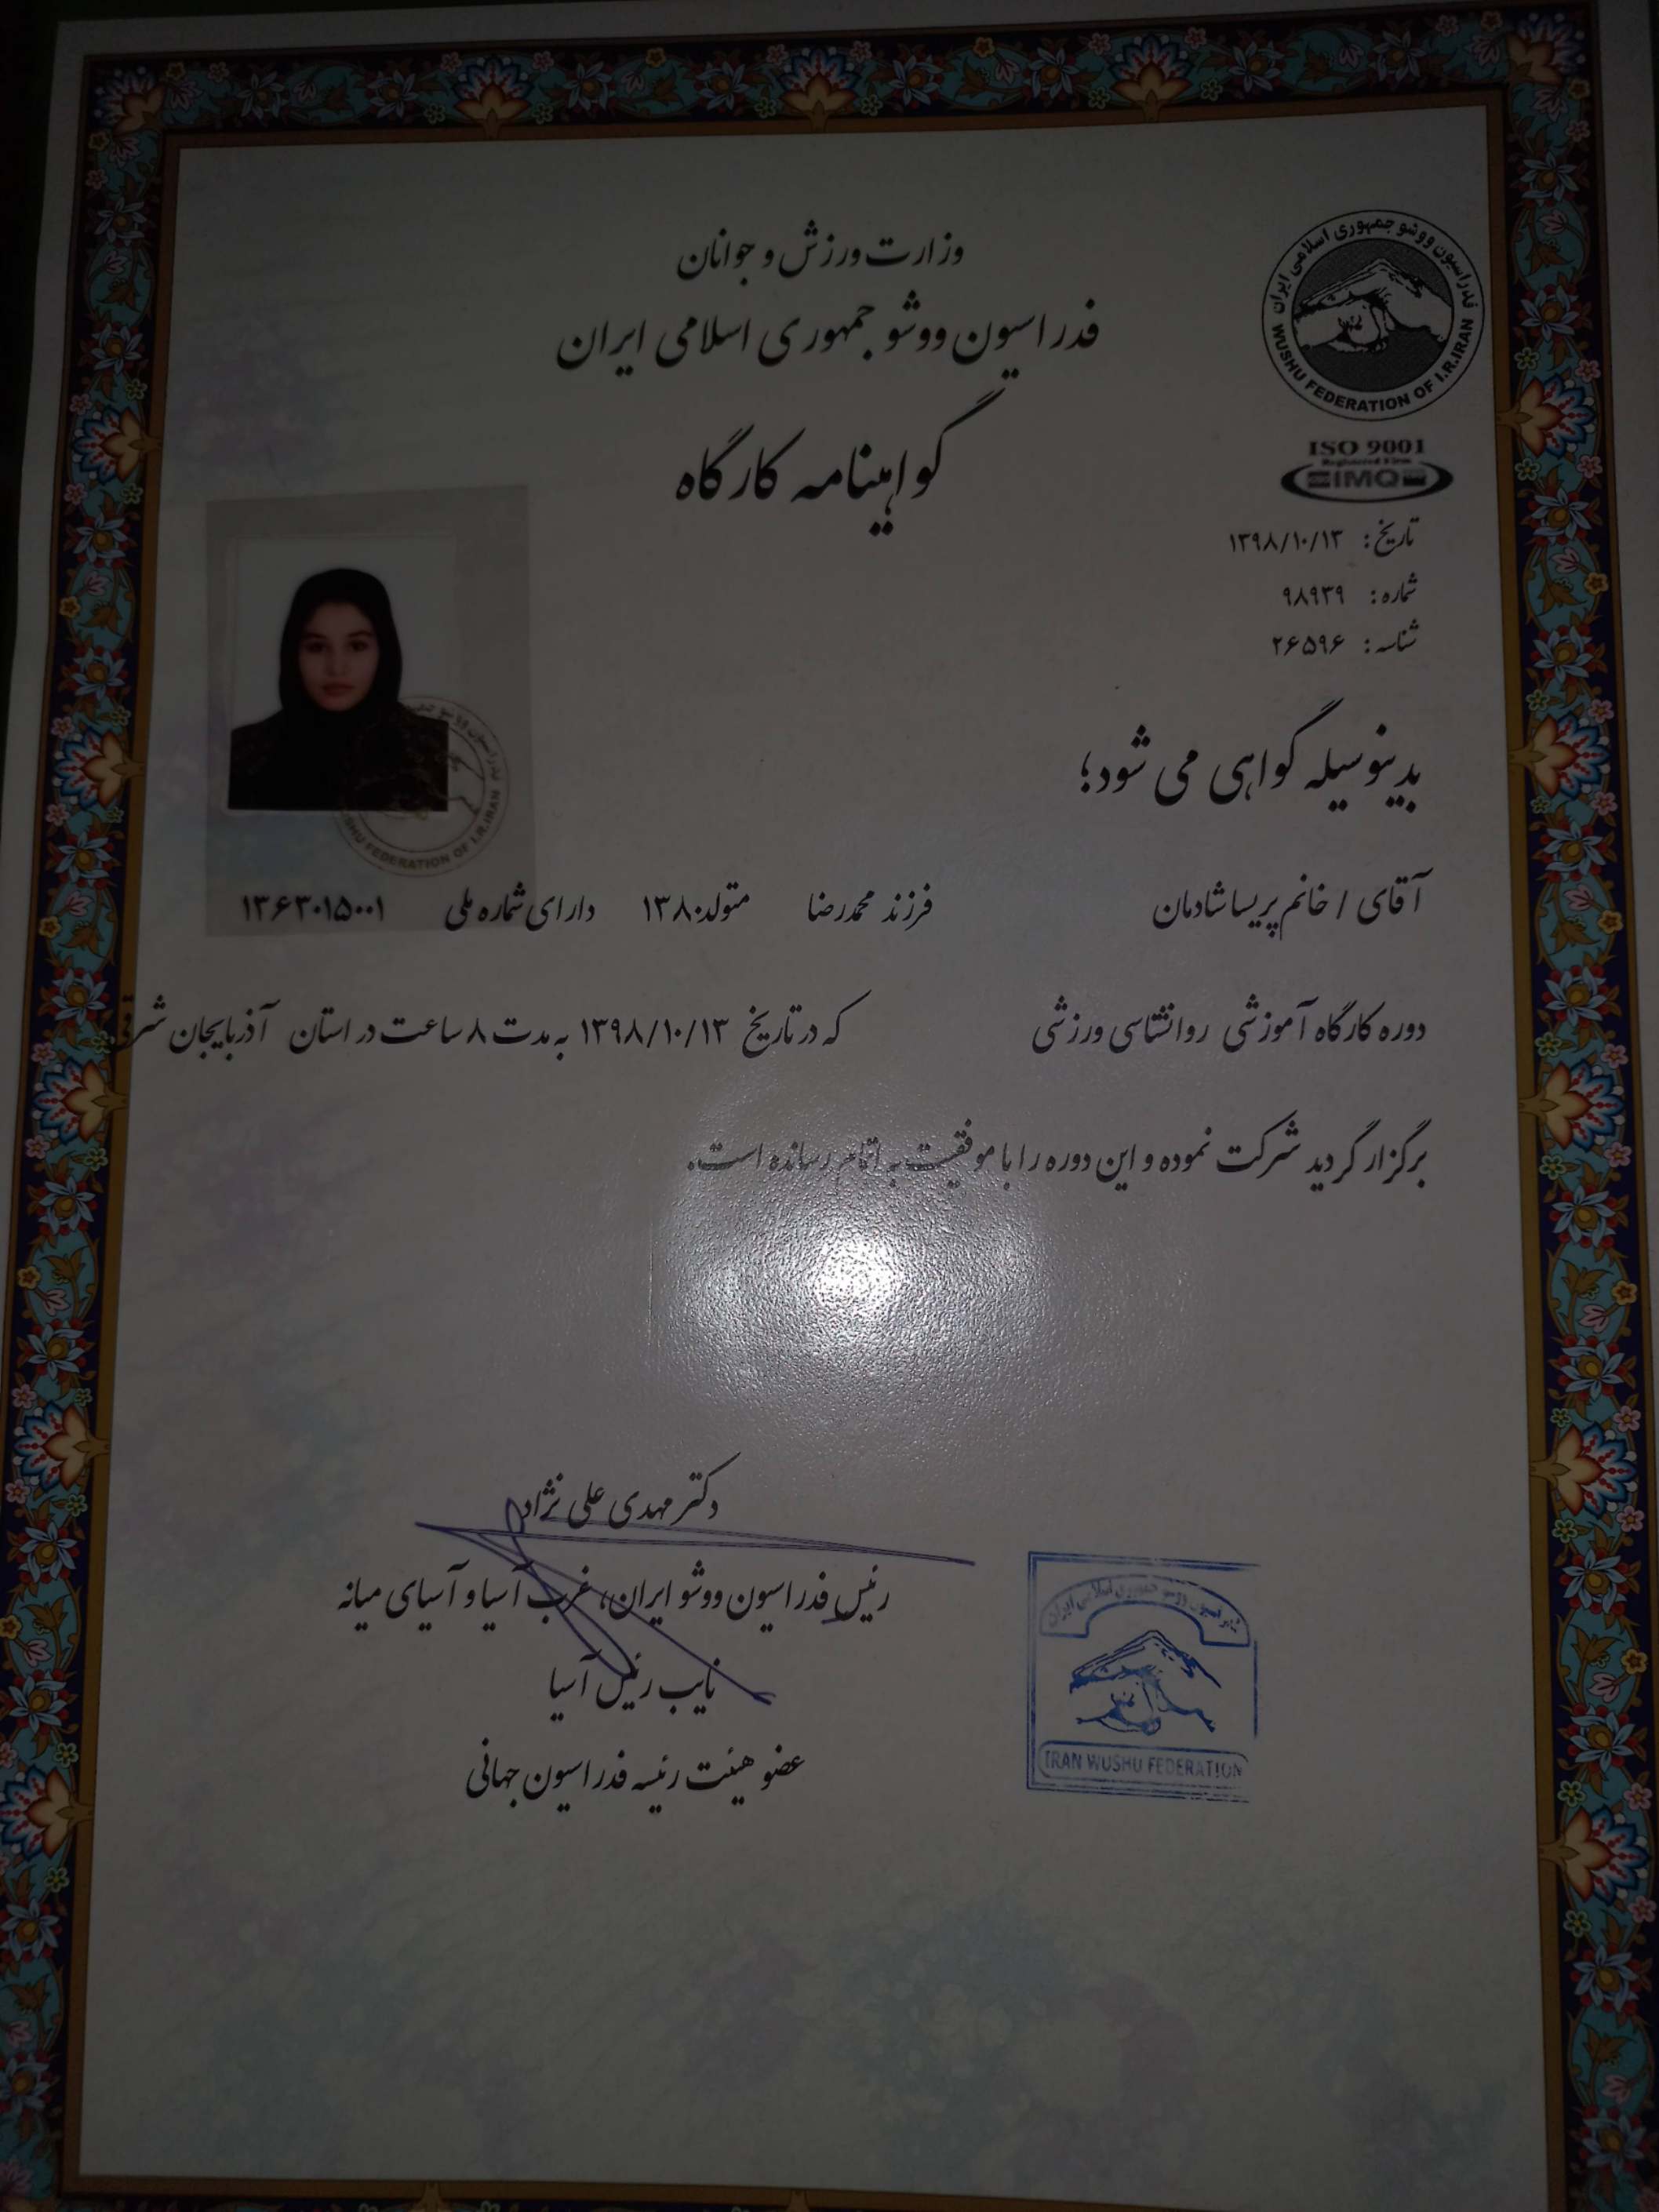 وزارت ورزش و جوانان
فدراسیون ووشو جمهوری اسلامی ایران
گواهینامه کارگاه
فدراسیون ووشو جمهوری اسلامی ایران
WUSHU FEDERATION OF I.R.IRAN
ISO 9001
Registered Firm
IMQ
تاریخ: ۱۳۹۸/۱۰/۱۳
شماره: ۹۸۹۳۹
شناسه: ۲۶۵۹۶
بدینوسیله گواهی می شود؛
آقای / خانم پریسا شادمان فرزند محمدرضا متولد: ۱۳۸۰ دارای شماره ملی ۱۳۶۳۰۱۵۰۰۱
دوره کارگاه آموزشی روانشناسی ورزشی که در تاریخ ۱۳۹۸/۱۰/۱۳ به مدت ۸ ساعت در استان آذربایجان شرقی
برگزار گردید شرکت نموده و این دوره را با موفقیت به اتمام رسانده است.
دکتر مهدی علی نژاد
رئیس فدراسیون ووشو ایران، غرب آسیا و آسیای میانه
نایب رئیس آسیا
عضو هیئت رئیسه فدراسیون جهانی
فدراسیون ووشو جمهوری اسلامی ایران
IRAN WUSHU FEDERATION
WUSHU FEDERATION OF I.R.IRAN